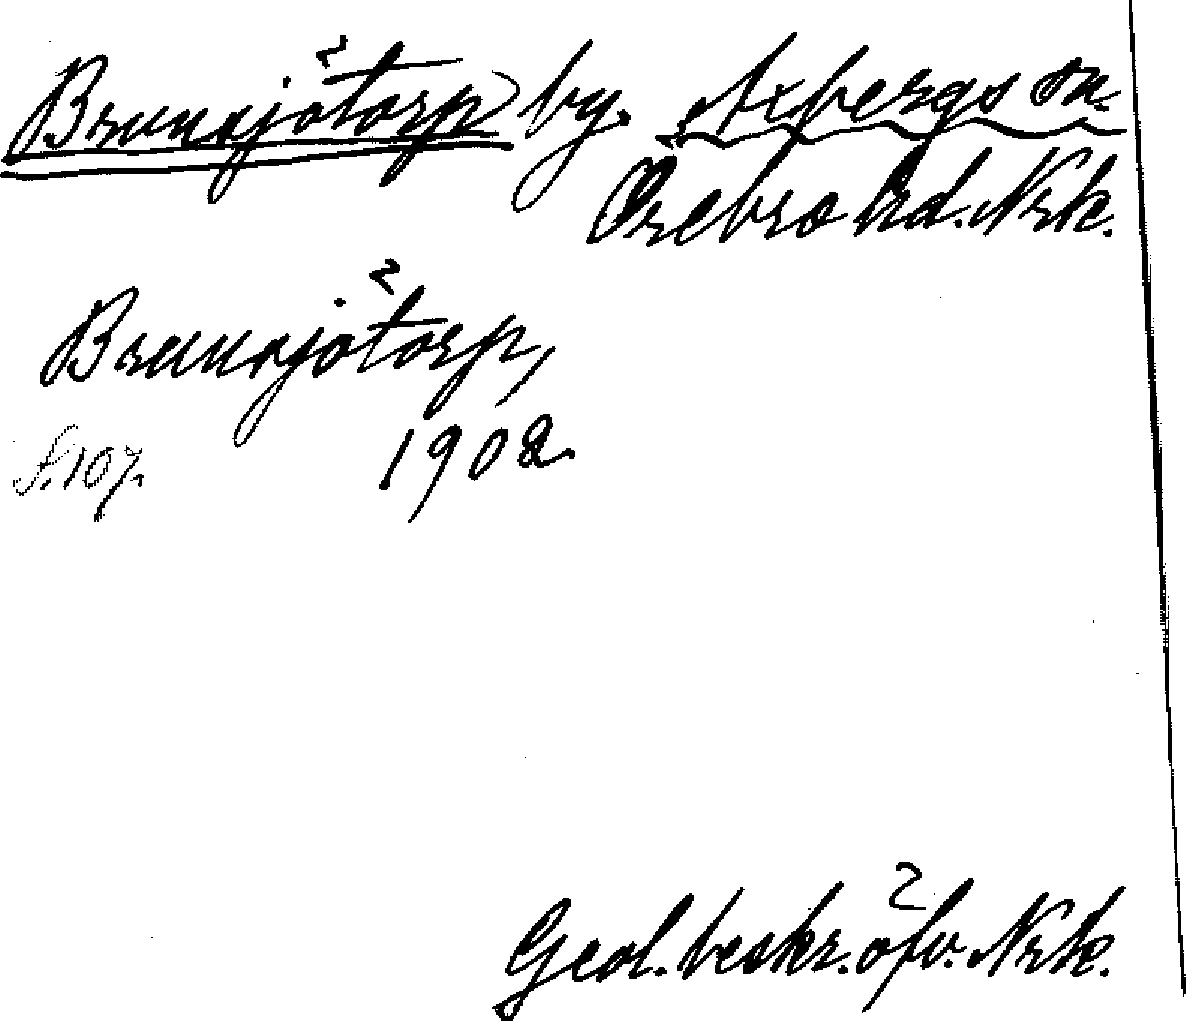 Brunnsjötorp by. Axbergs sn.
Örebro hd. Nrk.
Brunnsjötorp,
s. 107. 1902.
Geol. beskr. öfv. Nrk.